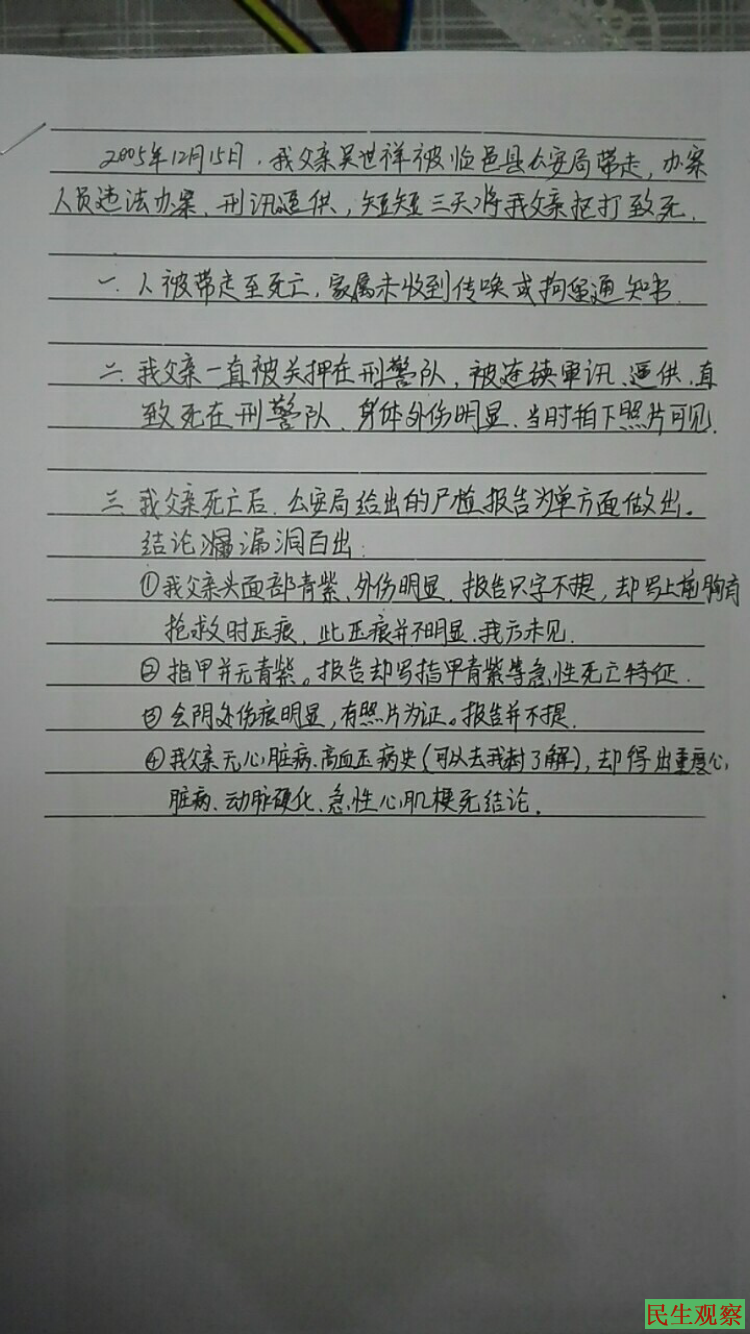 2005年12月15日，我父亲吴世祥被临邑县公安局带走，办案
人员违法办案、刑讯逼供，短短三天将我父亲抠打致死.
一、人被带走至死亡，家属未收到传唤或拘留通知书.
二、我父亲一直被关押在刑警队，被连续审讯、逼供，直
致死在刑警队、身体外伤明显.当时拍下照片可见.
三、我父亲死亡后，公安局给出的尸检报告为单方面做出。
结论漏洞百出：
①我父亲头面部青紫、外伤明显，报告只字不提，却写上前胸有
抢救时压痕，此压痕并不明显.我方未见.
②指甲并无青紫。报告却写指甲青紫等急性死亡特征.
③会阴处伤痕明显，有照片为证。报告并不提.
④我父亲无心脏病、高血压病史(可以去我村了解)，却得出重度心
脏病、动脉硬化、急性心肌梗死结论.
民生观察